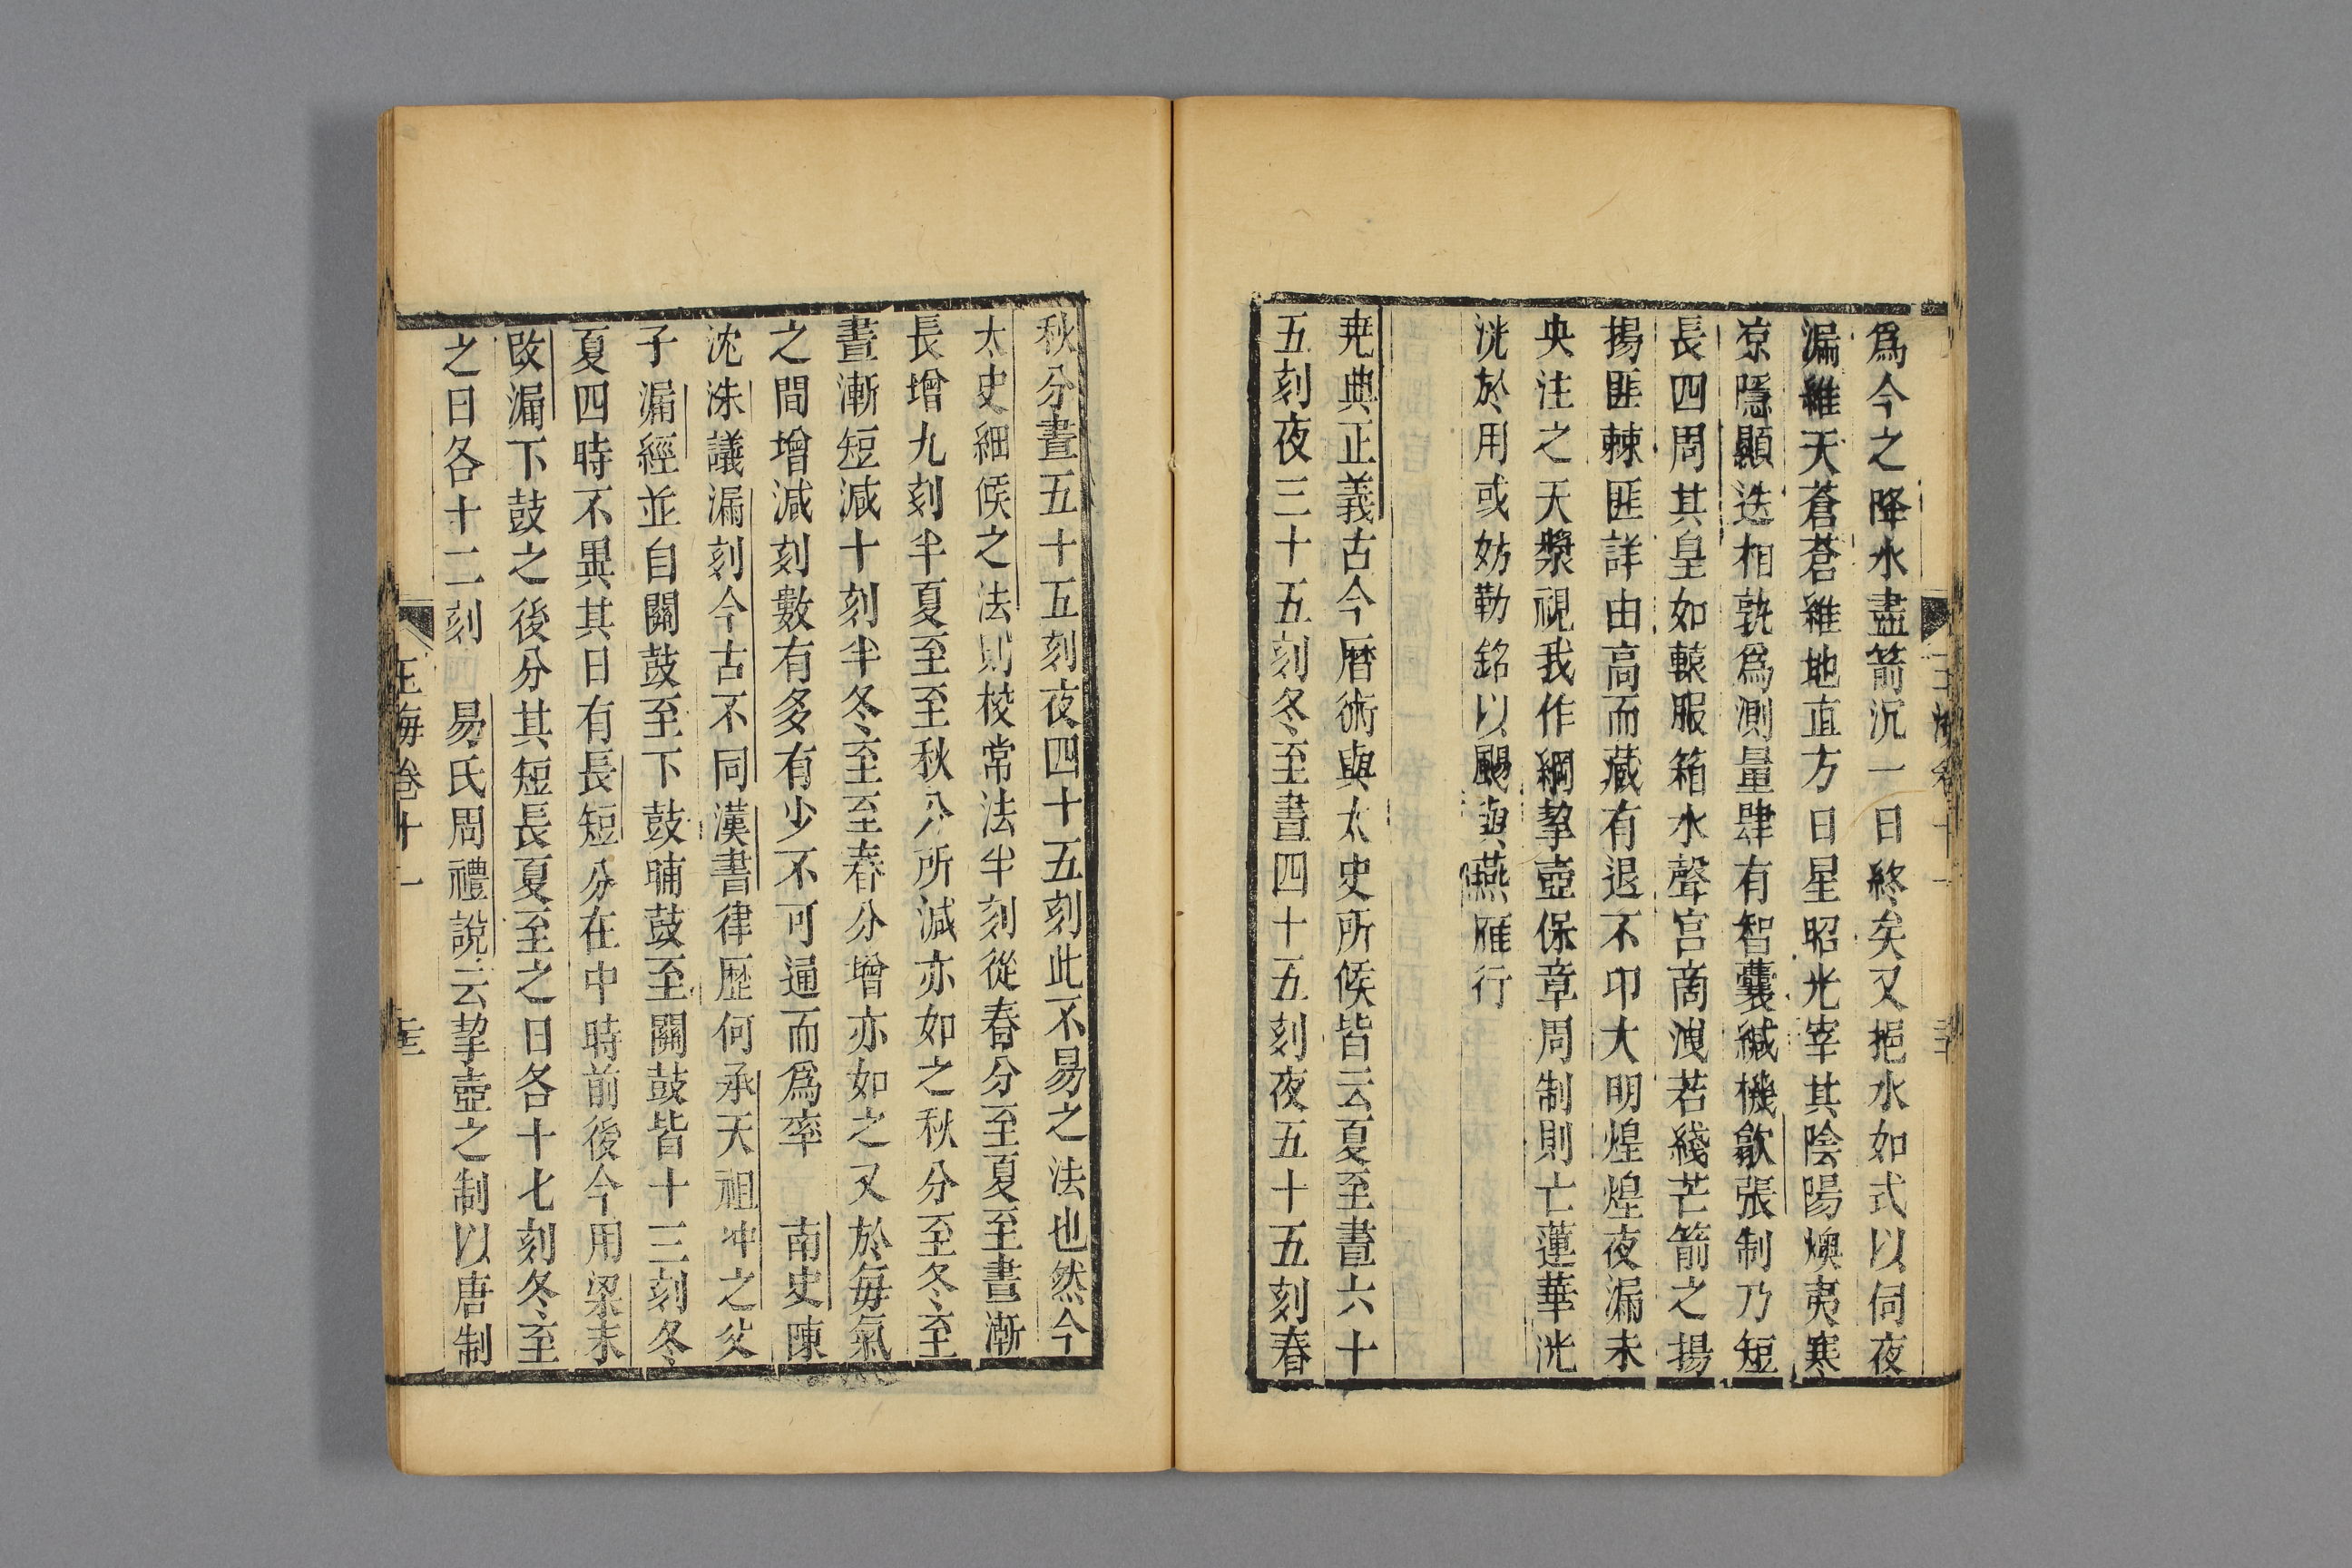 爲今之降水盡箭沉一日終矣又挹水如式以伺夜
漏維天蒼蒼維地直方日星昭光宰其陰陽燠夷寒
凉隱顯迭相孰爲測量肆有智囊緘機歙張制乃短
長四周其皇如轅服箱水聲宫商洩若綫芒箭之揚
揚匪棘匪詳由高而藏有退不卬大明煌煌夜漏未
央注之天漿視我作綱挈壺保章周制則亡蓮華洸
洸於用或妨勒銘以颺與燕雁行
尭典正義古今曆術與太史所候皆云夏至晝六十
五刻夜三十五刻冬至晝四十五刻夜五十五刻春
秋分晝五十五刻夜四十五刻此不易之法也然今
太史細候之法則校常法半刻從春分至夏至晝漸
長增九刻半夏至至秋分所減亦如之秋分至冬至
晝漸短減十刻半冬至至春分增亦如之又於每氣
之間增減刻數有多有少不可通而爲率 南史陳
沈洙議漏刻今古不同漢書律歷何承天祖冲之父
子漏經並自關鼓至下鼓晡鼓至關鼓皆十三刻冬
夏四時不異其日有長短分在中時前後今用梁末
改漏下鼓之後分其短長夏至之日各十七刻冬至
之日各十二刻 易氏周禮說云挈壺之制以唐制
玉海卷十一